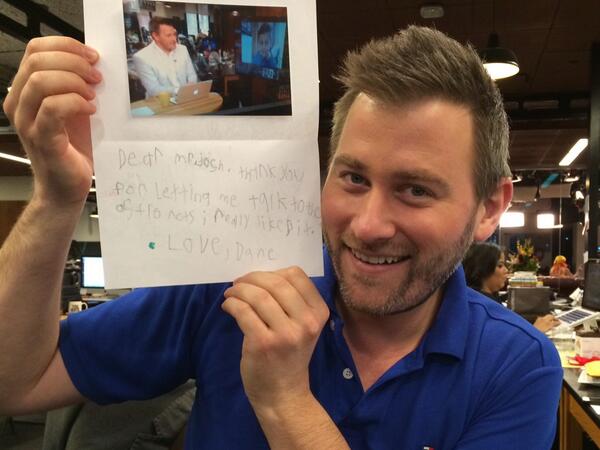 Dear mr.Josh. thank you
for Letting me talk to the
astronots i really liked it.
Love, Dane